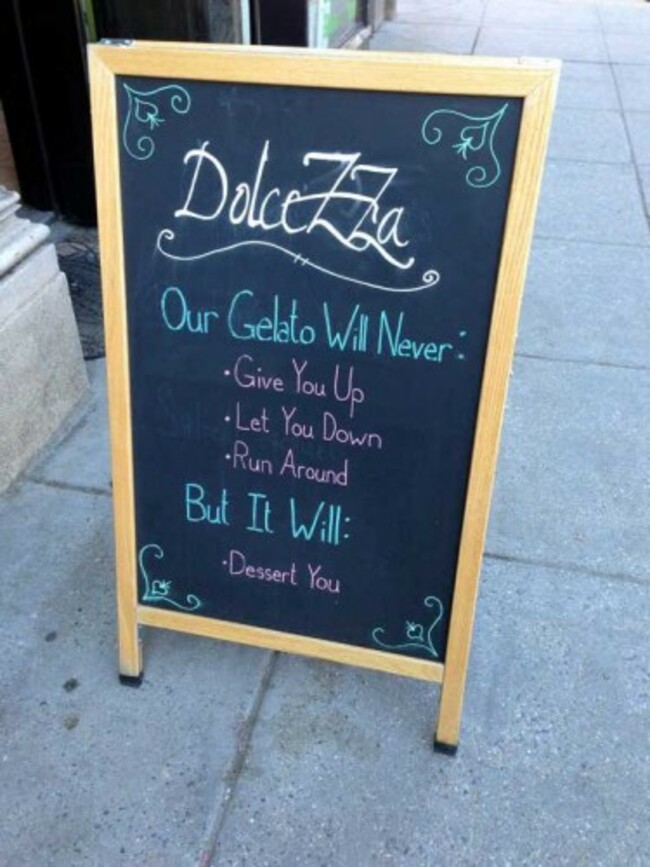 DolceZZa
Our Gelato Will Never:
·Give You Up
·Let You Down
·Run Around
But It Will:
·Dessert You